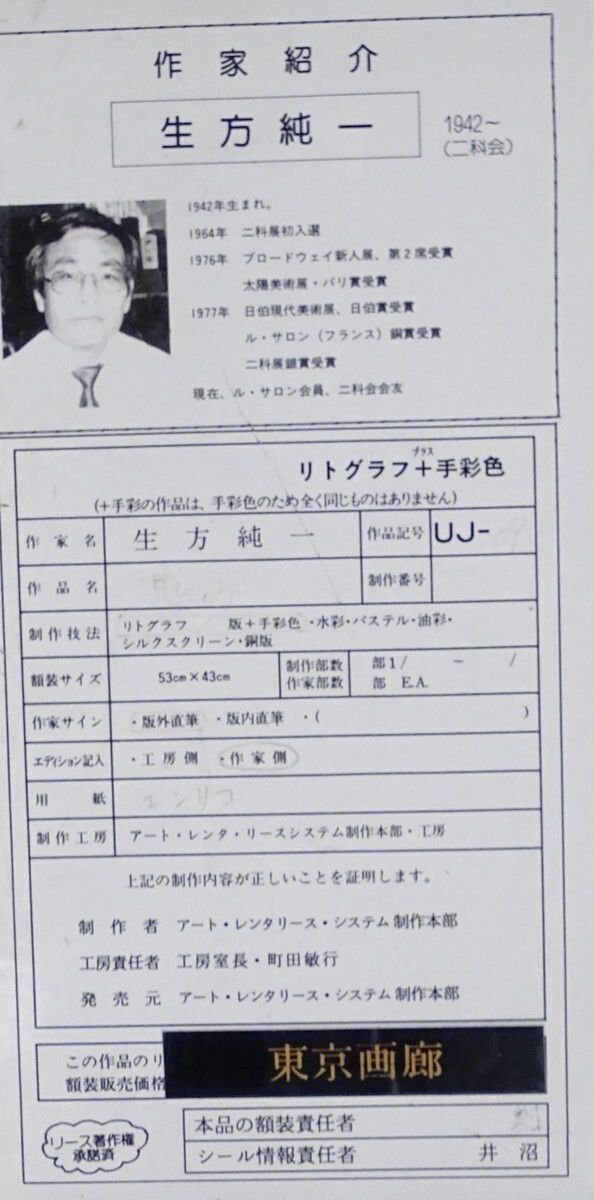 作家紹介
生方純一
1942~
(二科会)
1942年生まれ。
1964年 二科展初入選
1976年 ブロードウェイ新人展、第2席受賞
太陽美術展・パリ賞受賞
1977年 日伯現代美術展、日伯賞受賞
ル・サロン(フランス)銅賞受賞
二科展銀賞受賞
現在、ル・サロン会員、二科会会友
プラス
リトグラフ+手彩色
(+手彩の作品は、手彩色のため全く同じものはありません)
作家名 生方純一 作品記号 UJ-09
作品名 制作番号
制作技法 リトグラフ 版+手彩色・水彩・パステル・油彩・
シルクスクリーン・銅版
額装サイズ 53cm×43cm 制作部数 部1/ ~ /
作家部数 部 E.A.
作家サイン ・版外直筆 ・版内直筆 ・( )
エディション記入 ・工房側 ・作家側
用紙 エンリコ
制作工房 アート・レンタ・リースシステム制作本部・工房
上記の制作内容が正しいことを証明します。
制作者 アート・レンタリース・システム制作本部
工房責任者 工房室長・町田敏行
発売元 アート・レンタリース・システム制作本部
この作品のリ
額装販売価格
東京画廊
リース著作権
承諾済
本品の額装責任者
シール情報責任者 井沼